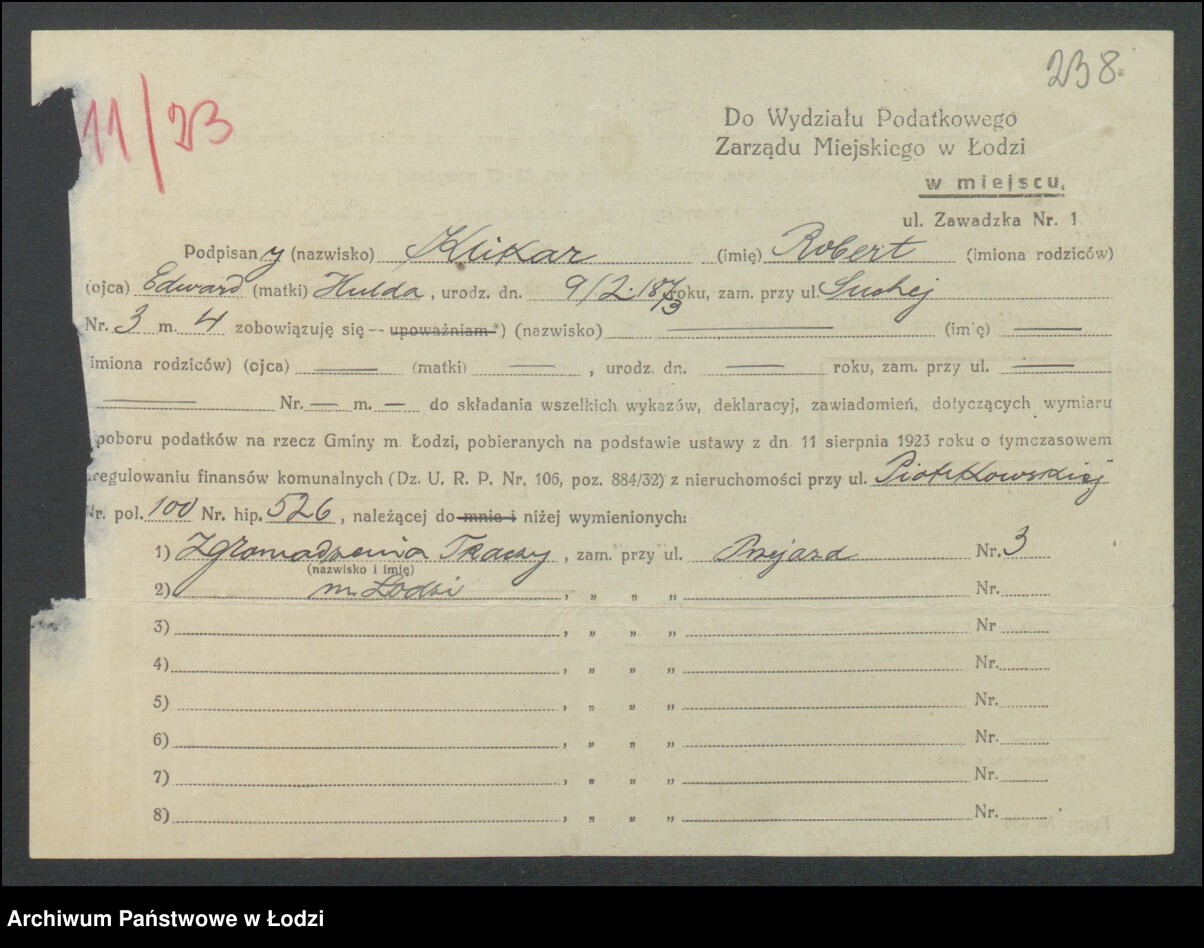 238.
11/23
Do Wydziału Podatkowego
Zarządu Miejskiego w Łodzi
w miejscu,
ul. Zawadzka Nr. 1
Podpisany (nazwisko) Klikar (imię) Robert (imiona rodziców)
(ojca) Edward (matki) Hulda, urodz. dn. 9/2.1873 roku, zam. przy ul. Suchej
Nr. 3 m. 4 zobowiązuję się — upoważniam*) (nazwisko) (imię)
imiona rodziców) (ojca) (matki) , urodz. dn. roku, zam. przy ul.
Nr. — m. — do składania wszelkich wykazów, deklaracyj, zawiadomień, dotyczących wymiaru
poboru podatków na rzecz Gminy m. Łodzi, pobieranych na podstawie ustawy z dn. 11 sierpnia 1923 roku o tymczasowem
regulowaniu finansów komunalnych (Dz. U. R. P. Nr. 106, poz. 884/32) z nieruchomości przy ul. Piotrkowskiej
Nr. pol. 100 Nr. hip. 526, należącej do mnie i niżej wymienionych:
1) Zgromadzenia Tkaczy, zam. przy ul. Przejazd Nr. 3
(nazwisko i imię)
2) m. Łodzi , „ „ „ Nr.
3) , „ „ „ Nr
4) , „ „ „ Nr.
5) , „ „ „ Nr.
6) , „ „ „ Nr.
7) , „ „ „ Nr.
8) , „ „ „ Nr.
Archiwum Państwowe w Łodzi